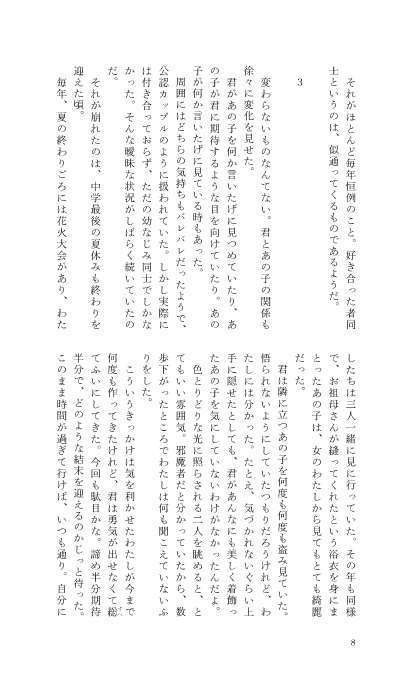 それがほとんど毎年恒例のこと。好き合った者同
士というのは、似通ってくるものであるようだ。
3
変わらないものなんてない。君とあの子の関係も
徐々に変化を見せた。
君があの子を何か言いたげに見つめていたり、あ
の子が君に期待するような目を向けていたり。あの
子が何か言いたげに見ている時もあった。
周囲にはどちらの気持ちもバレバレだったようで、
公認カップルのように扱われていた。しかし実際に
は付き合っておらず、ただの幼なじみ同士でしかな
かった。そんな曖昧な状況がしばらく続いていたの
だ。
それが崩れたのは、中学最後の夏休みも終わりを
迎えた頃。
毎年、夏の終わりごろには花火大会があり、わた
したちは三人一緒に見に行っていた。その年も同様
で、お祖母さんが縫ってくれたという浴衣を身にま
とったあの子は、女のわたしから見てもとても綺麗
だった。
君は隣に立つあの子を何度も何度も盗み見ていた。
悟られないようにしていたつもりだろうけれど、わ
たしには分かった。たとえ、気づかれないぐらい上
手に隠せたとしても、君があんなにも美しく着飾っ
たあの子を気にしていないわけがなかったんだよ。
色とりどりな光に照らされる二人を眺めると、と
てもいい雰囲気。邪魔者だと分かっていたから、数
歩下がったところでわたしは何も聞こえていないふ
りをした。
こういうきっかけは気を利かせたわたしが今まで
何度も作ってきたけれど、君は勇気が出せなくて総
てふいにしてきた。今回も駄目かな。諦め半分期待
半分で、どのような結末を迎えるのかじっと待った。
このまま時間が過ぎて行けば、いつも通り。自分に
8